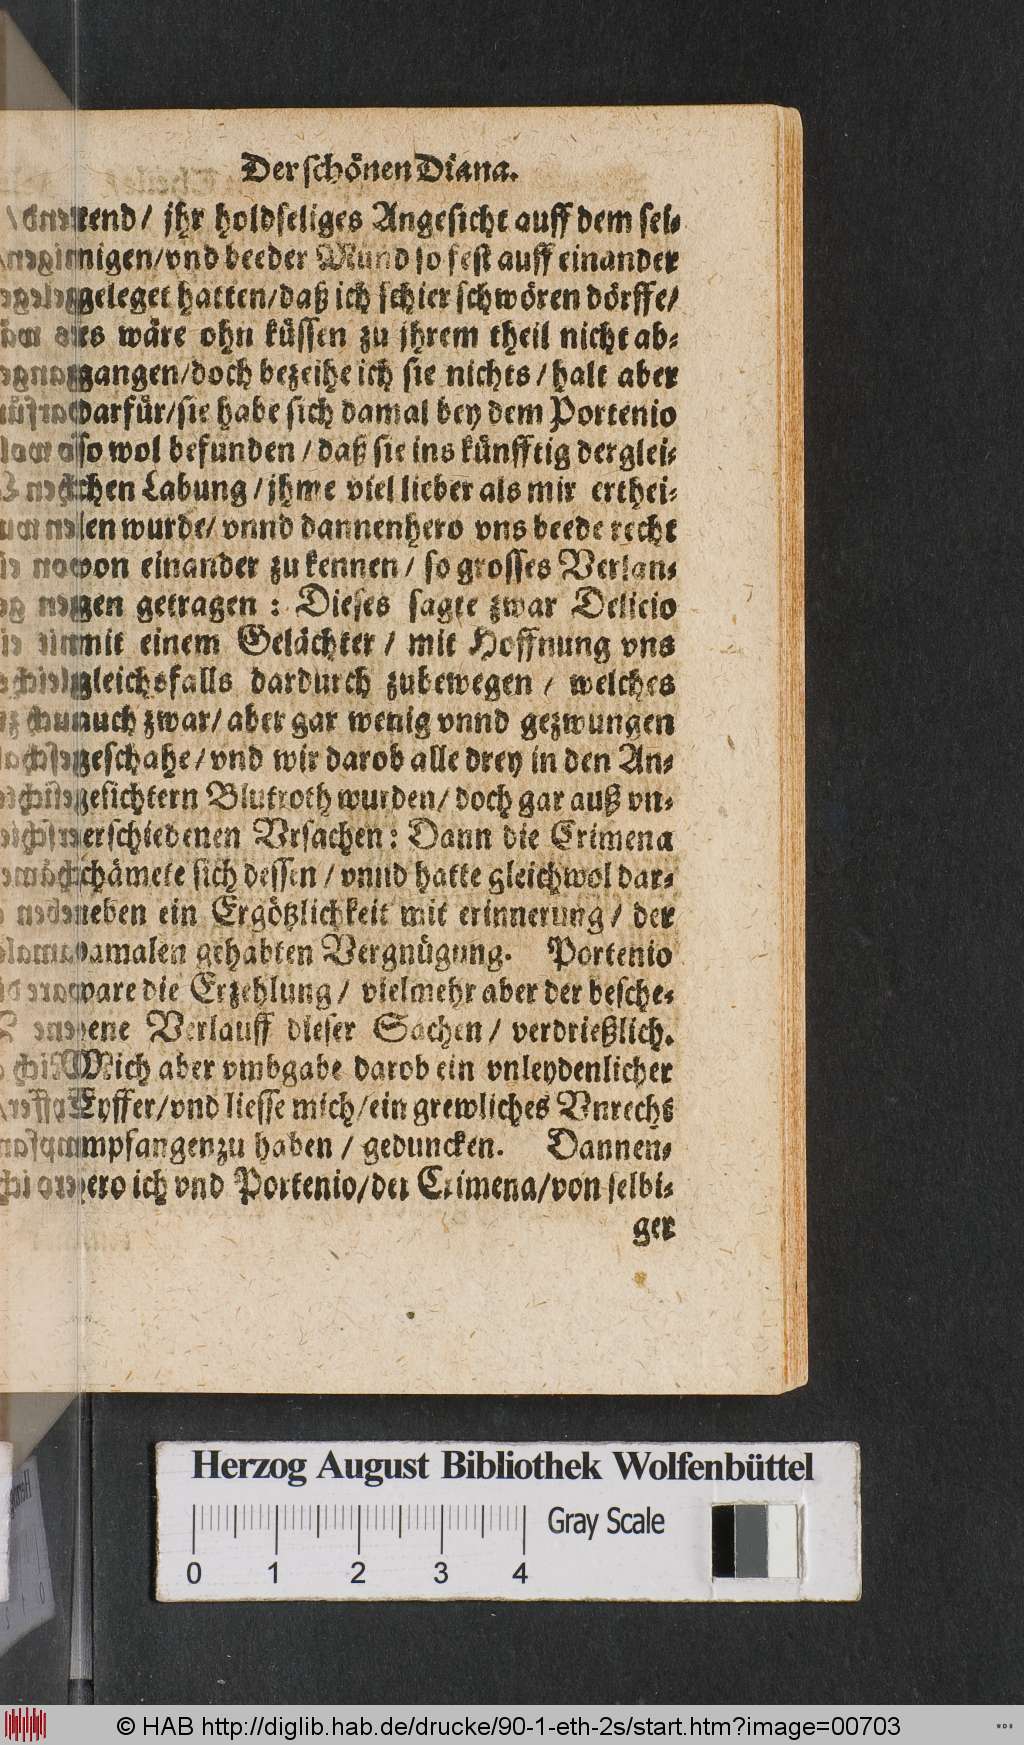 Der schönen Diana.
tend / jhr holdseliges Angesicht auff dem sel⸗
nigen / vnd beeder Mund so fest auff einander
geleget hatten / daß ich schier schwören dörffe /
es wäre ohn küssen zu jhrem theil nicht ab⸗
gangen / doch bezeihe ich sie nichts / halt aber
darfür / sie habe sich damal bey dem Portenio
so wol befunden / daß sie ins künfftig derglei⸗
chen Labung / jhme viel lieber als mir erthei⸗
len wurde / vnnd dannenhero vns beede recht
von einander zu kennen / so grosses Verlan⸗
gen getragen : Dieses sagte zwar Delicio
mit einem Gelächter / mit Hoffnung vns
gleichsfalls dardurch zubewegen / welches
auch zwar / aber gar wenig vnnd gezwungen
geschahe / vnd wir darob alle drey in den An⸗
gesichtern Blutroth wurden / doch gar auß vn⸗
erschiedenen Vrsachen : Dann die Crimena
chämete sich dessen / vnnd hatte gleichwol dar⸗
neben ein Ergötzlichkeit mit erinnerung / der
damalen gehabten Vergnügung. Portenio
ware die Erzehlung / vielmehr aber der besche⸗
ene Verlauff dieser Sachen / verdrießlich.
Mich aber vmbgabe darob ein vnleydenlicher
Eyffer / vnd liesse mich / ein grewliches Vnrecht
mpfangen zu haben / geduncken. Dannen⸗
ero ich vnd Portenio / der Crimena / von selbi⸗
ger
Herzog August Bibliothek Wolfenbüttel
Gray Scale
0 1 2 3 4
© HAB http://diglib.hab.de/drucke/90-1-eth-2s/start.htm?image=00703